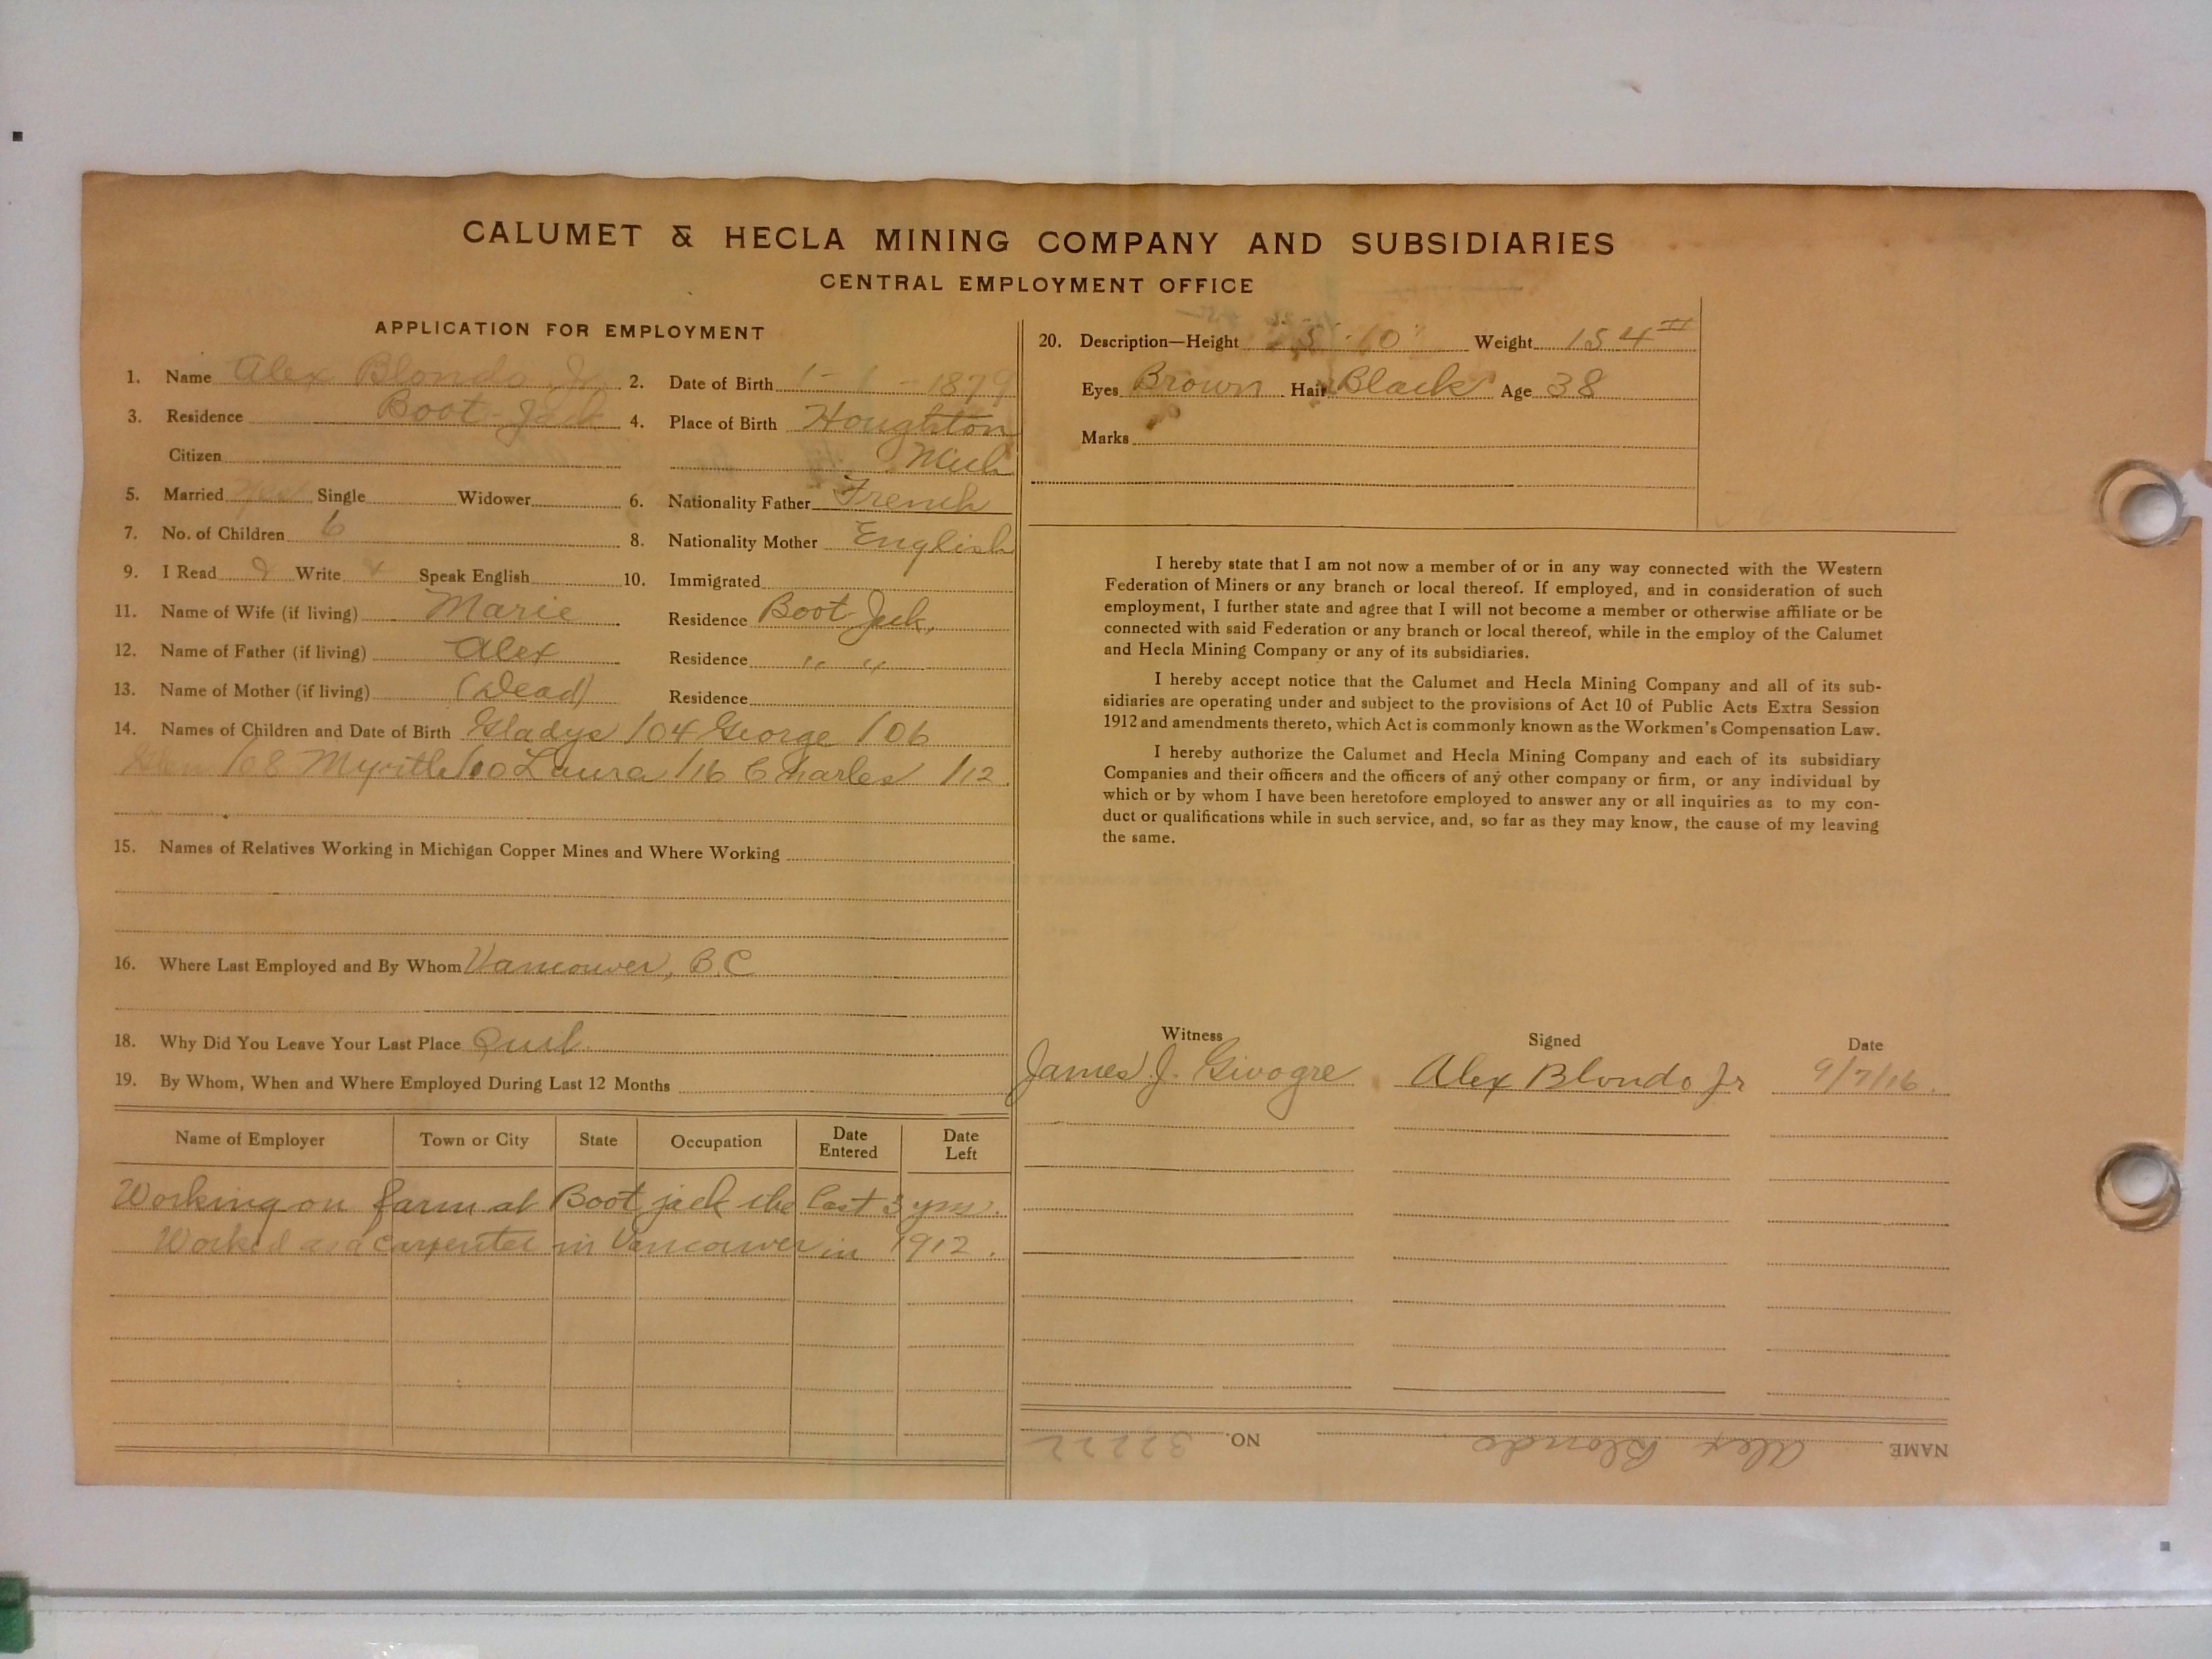 CALUMET & HECLA MINING COMPANY AND SUBSIDIARIES
CENTRAL EMPLOYMENT OFFICE
APPLICATION FOR EMPLOYMENT
1. Name Alex Blondo Jr. 2. Date of Birth 1-1-1879
3. Residence Boot-Jack 4. Place of Birth Houghton
Citizen Mich
5. Married yes Single Widower 6. Nationality Father French
7. No. of Children 6 8. Nationality Mother English
9. I Read Write Speak English 10. Immigrated
11. Name of Wife (if living) Marie Residence Boot Jack,
12. Name of Father (if living) Alex Residence " "
13. Name of Mother (if living) (Dead) Residence
14. Names of Children and Date of Birth Gladys /04 George /06
/08 Myrtle /00 Laura /16 Charles /12.
15. Names of Relatives Working in Michigan Copper Mines and Where Working
16. Where Last Employed and By Whom Vancouver, B.C
18. Why Did You Leave Your Last Place Quit.
19. By Whom, When and Where Employed During Last 12 Months
Name of Employer Town or City State Occupation Date Entered Date Left
Working on farm at Boot jack the last 3 yrs.
Worked as a carpenter in Vancouver in 1912.
20. Description—Height 5'-10" Weight 154#
Eyes Brown Hair Black Age 38
Marks
I hereby state that I am not now a member of or in any way connected with the Western
Federation of Miners or any branch or local thereof. If employed, and in consideration of such
employment, I further state and agree that I will not become a member or otherwise affiliate or be
connected with said Federation or any branch or local thereof, while in the employ of the Calumet
and Hecla Mining Company or any of its subsidiaries.
I hereby accept notice that the Calumet and Hecla Mining Company and all of its sub-
sidiaries are operating under and subject to the provisions of Act 10 of Public Acts Extra Session
1912 and amendments thereto, which Act is commonly known as the Workmen's Compensation Law.
I hereby authorize the Calumet and Hecla Mining Company and each of its subsidiary
Companies and their officers and the officers of any other company or firm, or any individual by
which or by whom I have been heretofore employed to answer any or all inquiries as to my con-
duct or qualifications while in such service, and, so far as they may know, the cause of my leaving
the same.
Witness Signed Date
James J. Givogre Alex Blondo Jr 9/7/16.
NAME Alex Blondo NO. 32222